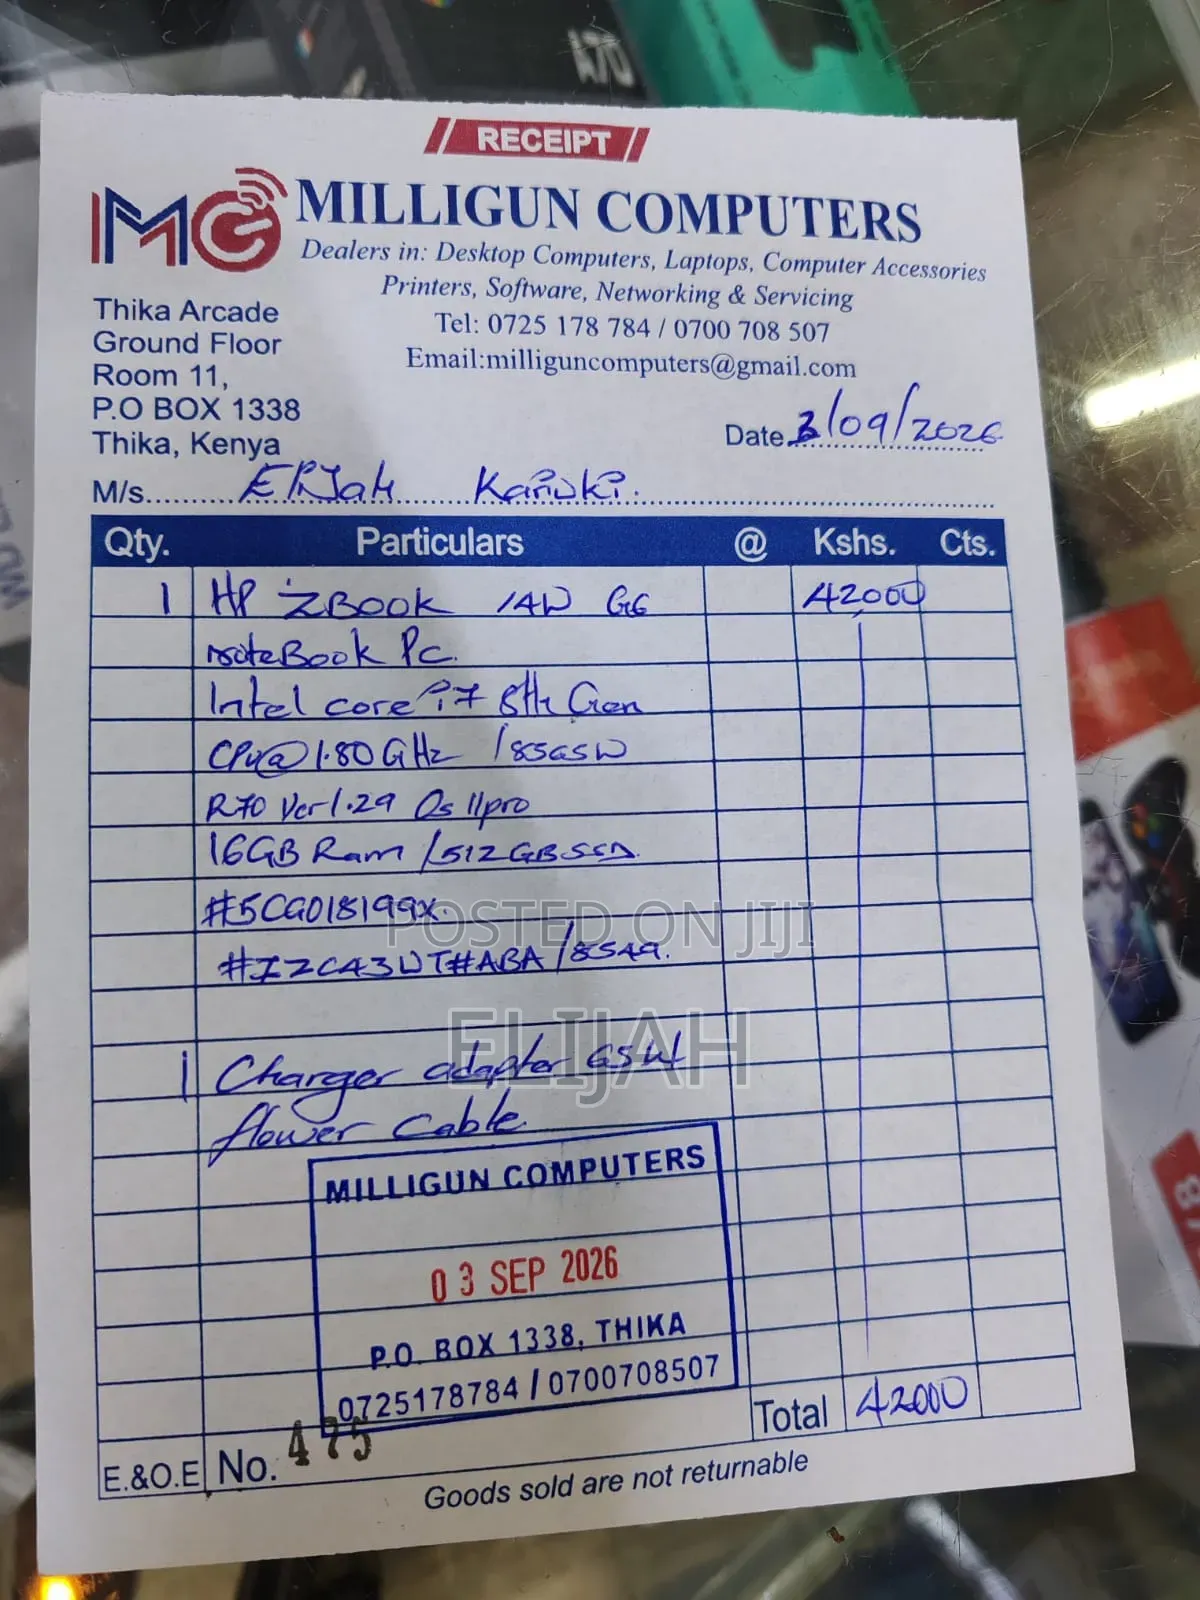 A70
RECEIPT
MG
MILLIGUN COMPUTERS
Dealers in: Desktop Computers, Laptops, Computer Accessories
Printers, Software, Networking & Servicing
Tel: 0725 178 784 / 0700 708 507
Email:milliguncomputers@gmail.com
Thika Arcade
Ground Floor
Room 11,
P.O BOX 1338
Thika, Kenya
Date 3/09/2026
M/s. Elijah Kariuki.
Qty. Particulars @ Kshs. Cts.
1 HP ZBOOK 14U G6 42000
noteBook Pc.
Intel core i7 8th Gen
CPU@ 1.80GHz /8565U
R70 Ver 1.29 Os 11pro
16GB Ram /512GB SSD
#5CG018199X.
#7ZC43UT#ABA /8549.
POSTED ON JIJI
ELIJAH
1 Charger adapter 65W
flower cable
MILLIGUN COMPUTERS
03 SEP 2026
P.O. BOX 1338, THIKA
0725178784 / 0700708507
Total 42000
E.&O.E No. 475
Goods sold are not returnable